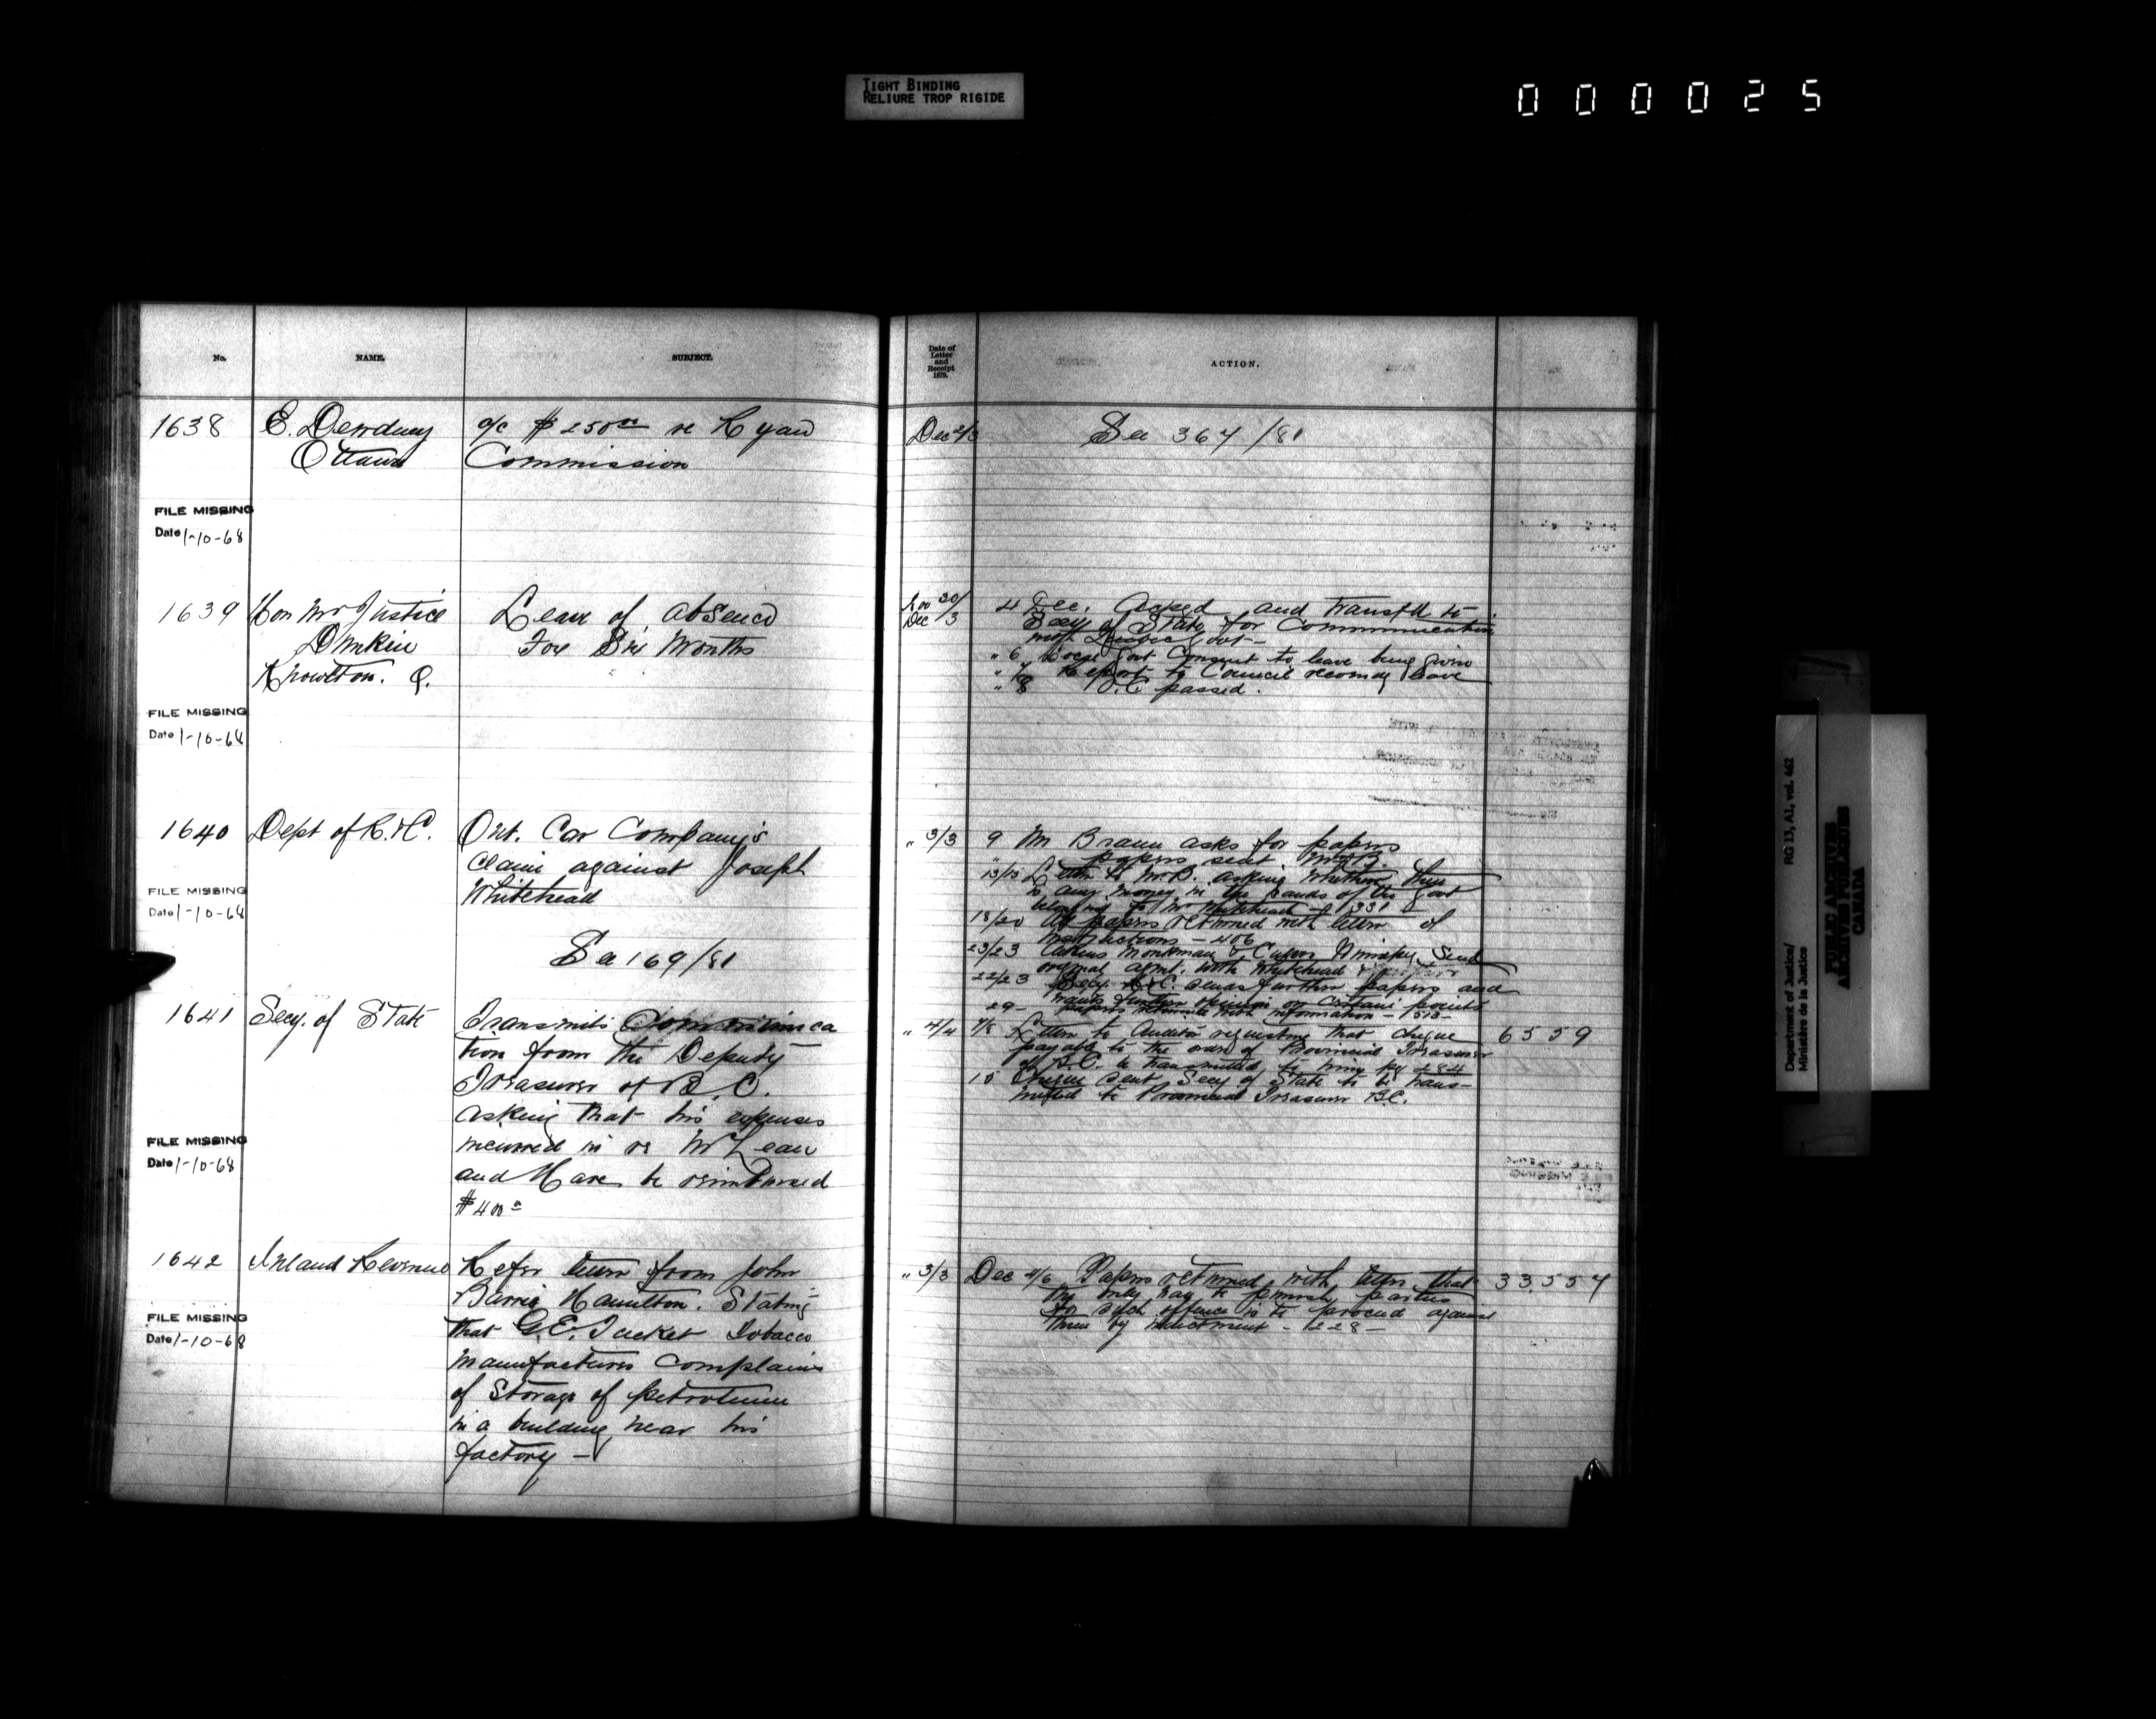 TIGHT BINDING
RELIURE TROP RIGIDE
000025
No. NAME. SUBJECT.
1638 E. Dewdney a/c $250.00 re Ryan
Ottawa Commission
FILE MISSING
Date 1-10-68
1639 Hon Mr Justice Leave of absence
Dunkin For Six Months
Knowlton. Q.
FILE MISSING
Date 1-10-68
1640 Dept of R. & C. Ont. Car Company's
claim against Joseph
Whitehead
FILE MISSING
Date 1-10-68
See 169/81
1641 Secy. of State Transmits Communica
tion from the Deputy
Treasurer of B.C.
asking that his expenses
incurred in re McLean
and Hare be reimbursed
$400
FILE MISSING
Date 1-10-68
1642 Inland Revenue Refer letter from John
Barrie Hamilton. Stating
that G.E. Tucket Tobacco
Manufacturer complains
of Storage of petroleum
in a building near his
factory -
FILE MISSING
Date 1-10-68
Date of
Letter
and
Receipt
1879.
ACTION.
Dec 2/3 See 367/81
Nov 30/
Dec /3
4 Dec. Acked and transfd to
Secy of State for Communication
with Quebec Govt -
" 6 Local Govt Consent to leave being given
" 7 Report to Council recomdg leave
" 8 O.C. passed.
" 3/3 9 Mr Braun asks for papers
" papers sent Mr B.
13/13 Letter to Mr B. asking whether there
is any money in the hands of the Govt
belonging to Mr Whitehead - 331
18/20 All papers returned with letter of
instructions - 406
23/23 Aikins Monkman & Culver Winnipeg Send
original agmt. with Whitehead
22/23 Secy R & C. sends further papers and
wants further opinion on certain points
29 - papers returned with information - 513 -
" 4/4 7/8 Letter to Auditor requesting that cheque 6559
payable to the order of Provincial Treasurer
of B.C. be transmitted to him pg 284
15 Cheque sent Secy of State to be trans-
mitted to Provincial Treasurer B.C.
" 3/3 Dec 4/6 Papers returned with letter that 33,557
the only way to punish parties
for such offence is to proceed against
them by indictment - 228 -
Department of Justice/
Ministère de la Justice
RG 13, A1, vol. 462
PUBLIC ARCHIVES
ARCHIVES PUBLIQUES
CANADA